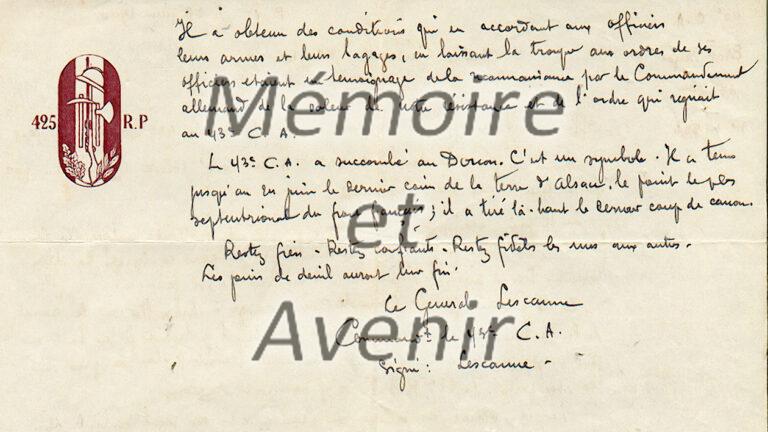 Il a obtenu des conditions qui en accordant aux officiers
leurs armes et leurs bagages, en laissant la troupe aux ordres de ses
officiers étaient un témoignage de la reconnaissance par le Commandement
allemand de la valeur de notre résistance et de l'ordre qui régnait
au 43e C.A.
Le 43e C.A. a succombé au Donon. C'est un symbole. Il a tenu
jusqu'au en juin le dernier coin de la terre d'Alsace, le point le plus
septentrional du front français; il a tiré là-haut le dernier coup de canon.
Restez fiers - Restez confiants - Restez fidèles les uns aux autres -
Les jours de deuil auront leur fin.
Le Général Lescanne
Commandt le 43e C.A.
Signé : Lescanne -
425 R.P
Mémoire
et
Avenir